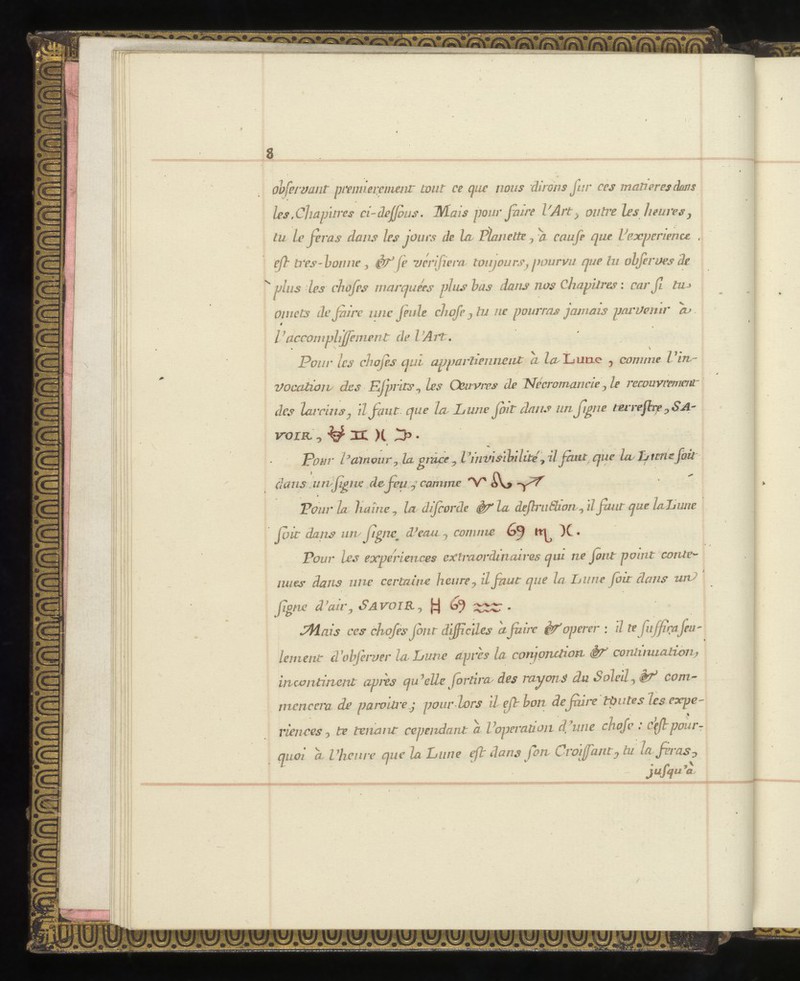 8
obſervant premierement tout ce que nous dirons ſur ces matieres dans
les Chapitres ci-deſſous. Mais pour faire l'Art, outre les heures,
tu le feras dans les jours de la Planette, à cauſe que l'experience
eſt tres-bonne, & ſe vérifiera toujours, pourvu que tu obſerves de
plus les choſes marquées plus bas dans nos Chapitres: car ſi tu
omets de faire une ſeule choſe, tu ne pourras jamais parvenir à
l'accompliſſement de l'Art.
Pour les choſes qui appartiennent à la Lune, comme l'in-
vocation des Eſprits, les Œuvres de Nécromancie, le recouvrement
des larcins, il faut que la Lune ſoit dans un ſigne terreſtre, SA-
VOIR,
Pour l'amour, la grace, l'invisibilité, il faut que la Lune ſoit
dans un ſigne de feu, comme ♈ ♌ ♐
Pour la haine, la diſcorde & la deſtruction, il faut que la Lune
ſoit dans un ſigne d'eau, comme ♋ ♏ ♓.
Pour les expériences extraordinaires qui ne ſont point conte-
nues dans une certaine heure, il faut que la Lune ſoit dans un
ſigne d'air, SAVOIR, ♊ ♋ ♒.
Mais ces choſes ſont difficiles à faire & operer : il te ſuffira ſeu-
lement d'obſerver la Lune après la conjonction & continuation,
incontinent après qu'elle ſortira des rayons du Soleil, & com-
mencera de paroitre; pour lors il eſt bon de faire toutes les expe-
riences, te tenant cependant à l'operation d'une choſe : c'eſt pour-
quoi à l'heure que la Lune eſt dans ſon Croiſſant, tu la feras,
juſqu'à